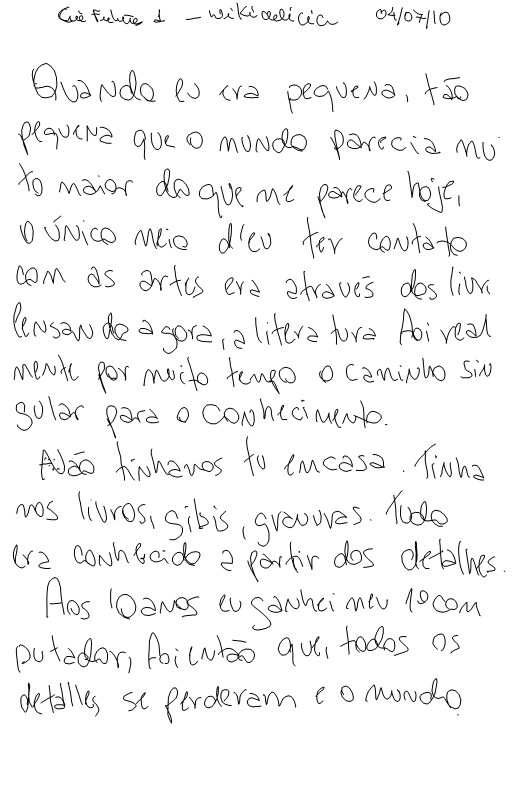 Futuro 1 - wikidelícia 04/07/10
Quando eu era pequena, tão
pequena que o mundo parecia mui
to maior do que me parece hoje,
o único meio d'eu ter contato
com as artes era através dos livr
Pensando agora, a literatura foi real
mente por muito tempo o caminho sin
gular para o conhecimento.
Não tinhamos tv em casa. Tinha
mos livros, gibis, gravuras. Tudo
era conhecido a partir dos detalhes.
Aos 10 anos eu ganhei meu 1º com
putador, foi então que, todos os
detalles se perderam e o mundo